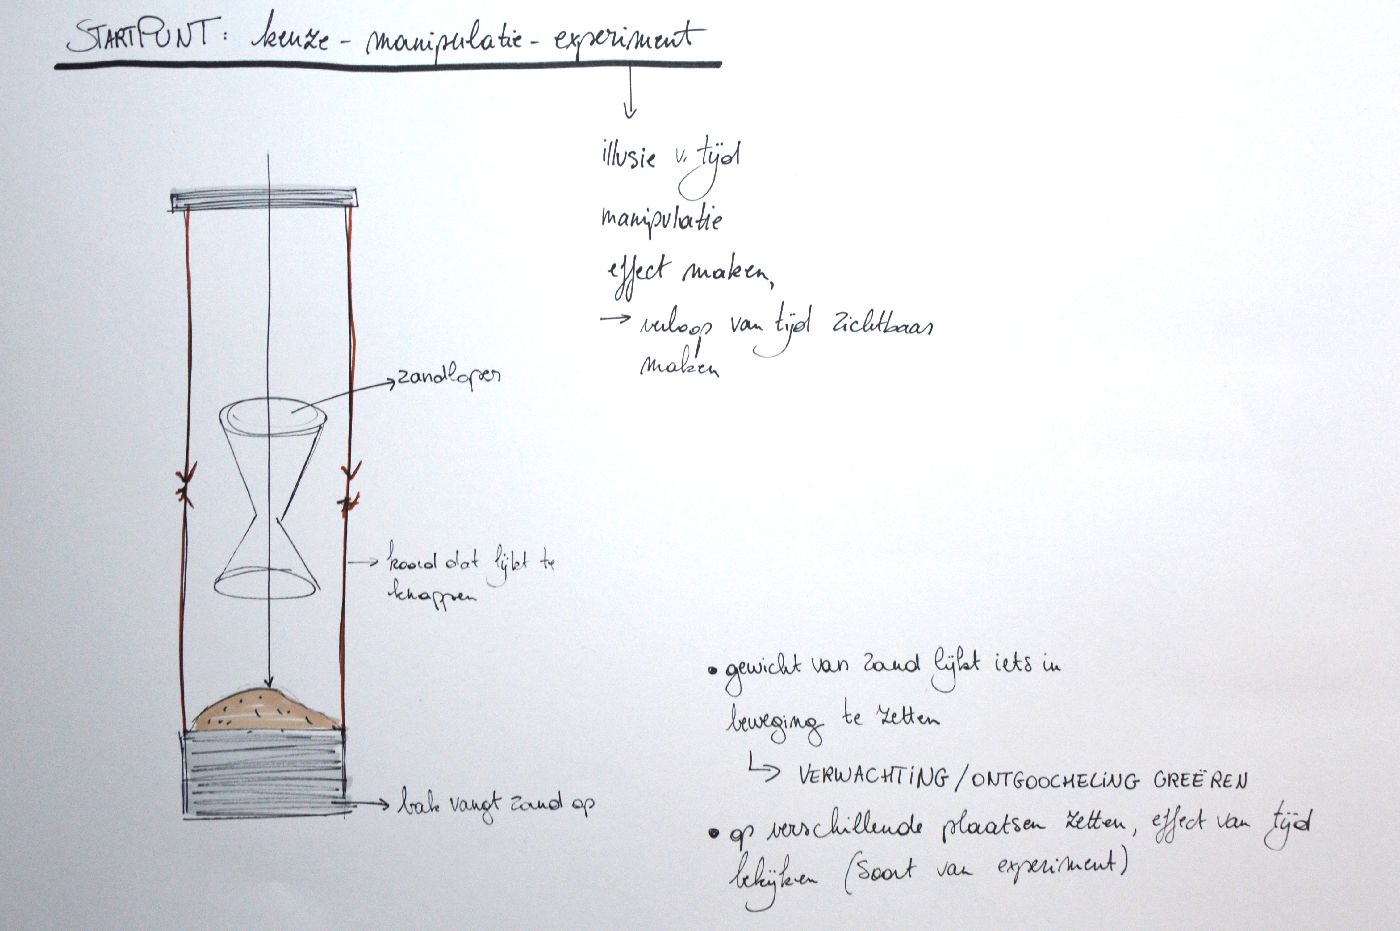 STARTPUNT: keuze - manipulatie - experiment
illusie v. tijd
manipulatie
effect maken,
→ verloop van tijd zichtbaar
maken
zandloper
koord dat lijkt te
knappen
• gewicht van zand lijkt iets in
beweging te zetten
↳ VERWACHTING/ONTGOOCHELING CREËREN
bak vangt zand op
• op verschillende plaatsen zetten, effect van tijd
bekijken (soort van experiment)